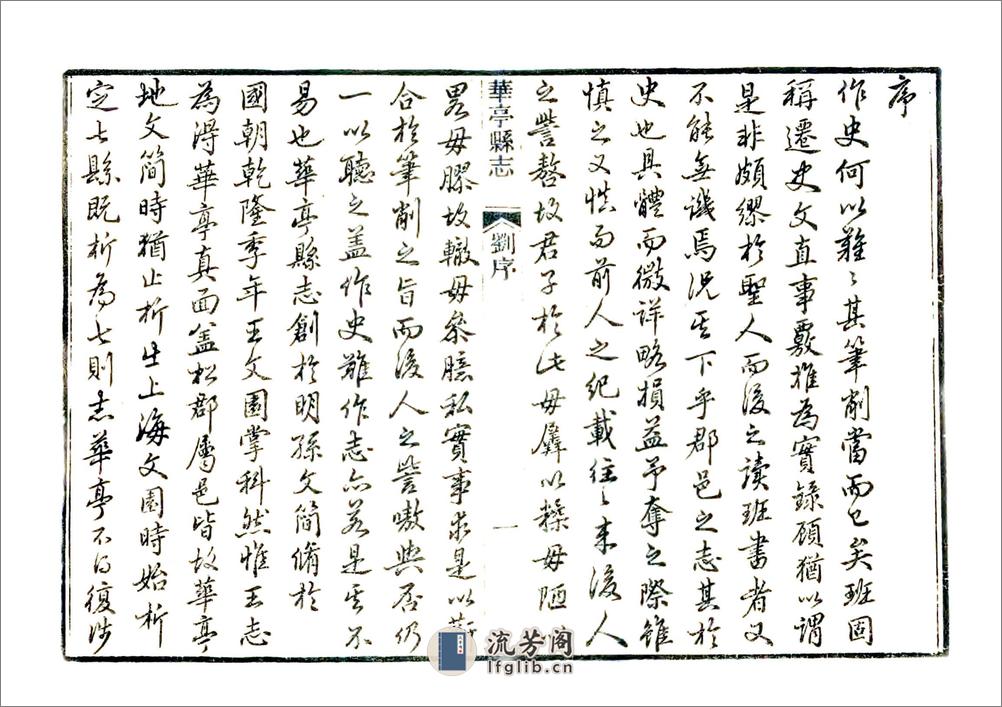 序
作史何以難難其筆削當而已矣班固
稱遷史文直事覈推為實錄顧猶以謂
是非頗繆於聖人而後之讀班書者又
不能無譏焉況其下乎郡邑之志其於
史也具體而微詳略損益予奪之際雖
慎之又慎而前人之紀載往往來後人
之訾謷故君子於此毋驛以糅毋陋
華亭縣志
劉序
一
畧毋膠故轍毋參臆私實事求是以蘄
合於筆削之旨而後人之訾嗷與否仍
一以聽之蓋作史難作志亦若是其不
易也華亭縣志創於明孫文簡脩於
國朝乾隆季年王文園掌科然惟王志
為得華亭真面蓋松郡屬邑皆故華亭
地文簡時猶止析出上海文園時始析
定七縣既析為七則志華亭不得復涉
流芳阁
lfglib.cn